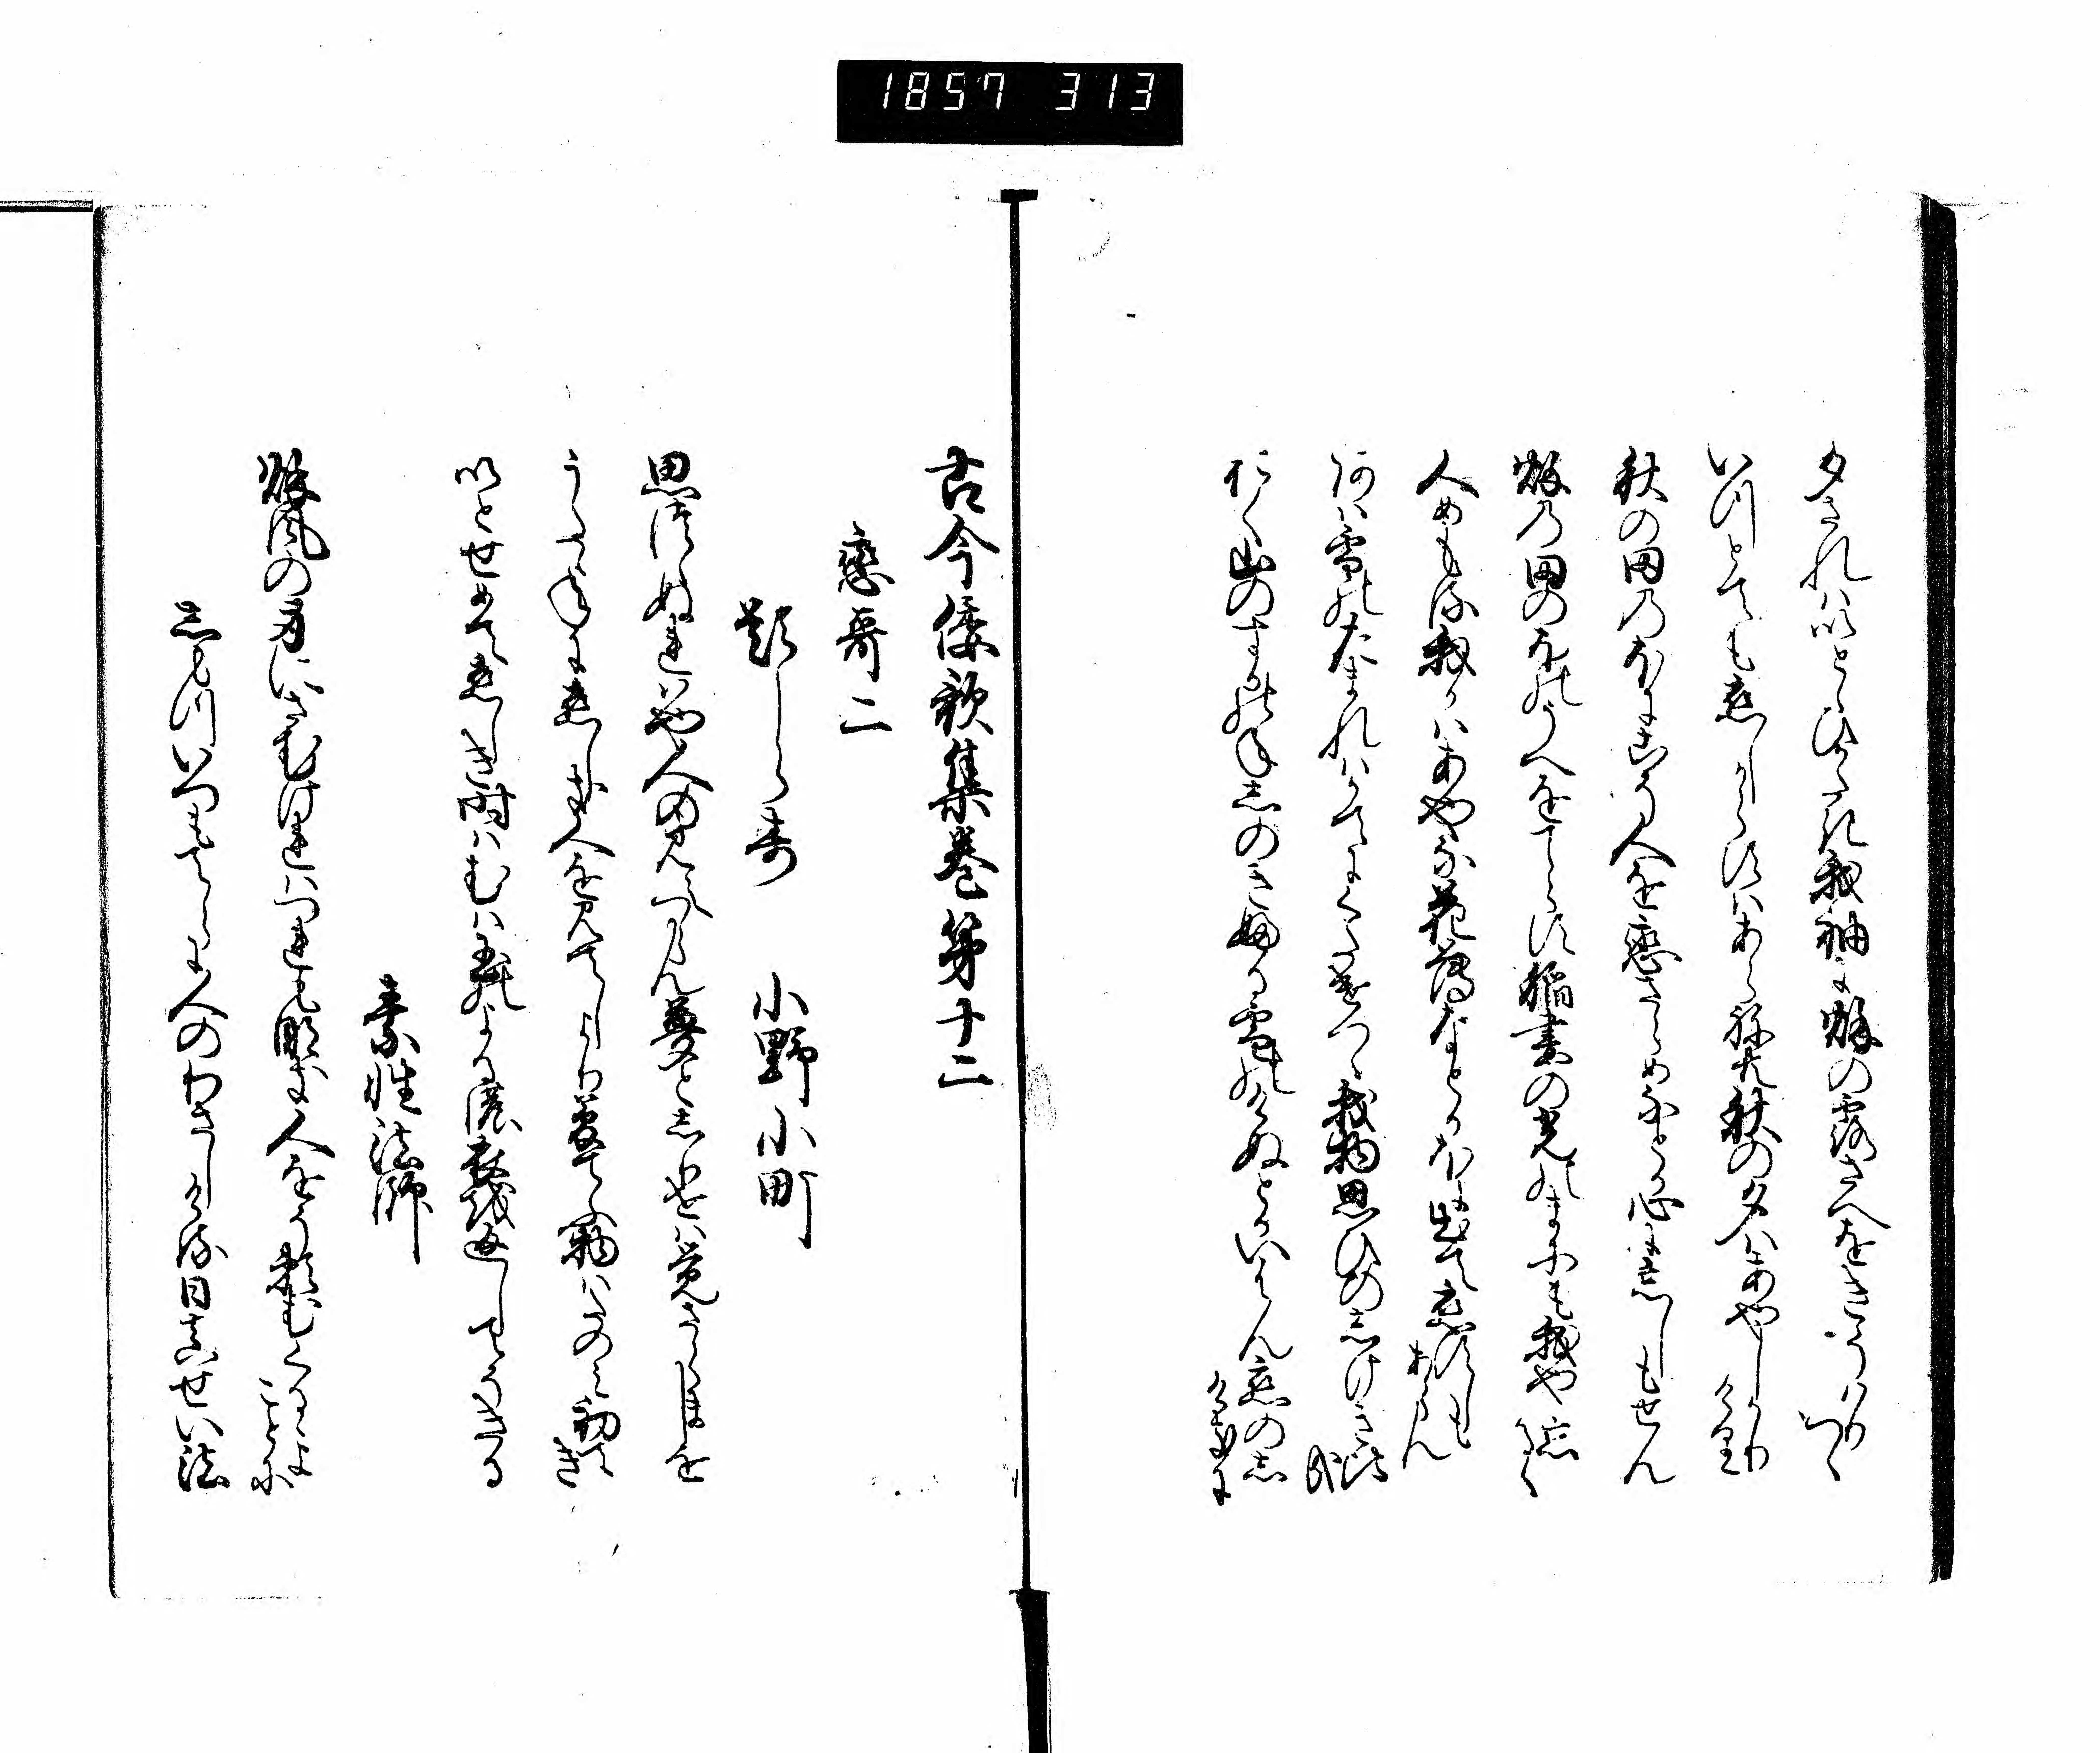 1857 313
夕されはいとゝひかたき我袖に秌の露さへをきそはりつゝ
いつとても恋しからすはあらねとも秋の夕はあやしかりけり
秋の田のほにこそ人を恋さらめなとか心に忘しもせん
秌の田のほのうへをてらす稲妻の光のまにも我や忘るゝ
人めもる我かはあやな花薄なとかほに出て恋すしもあらん
淡雪のたまれはかてにくたけつゝ我物思ひの志けき比哉
おく山のすかのねしのきふる雪のけぬとかいはん恋の志けきに
古今倭歌集巻第十二
戀哥二
題しらす 小野小町
思つゝぬれはや人の見えつらん夢と志りせは覚さらましを
うたゝねに恋しき人を見てしより夢てふ物はたのみ初てき
いとせめて恋しき時はむは玉のよるの衣を返してそきる
素性法師
秌風の身にさむけれはつれもなき人をそ頼むくるゝよことに
志もついつもてらに人のわさしける日真せい法